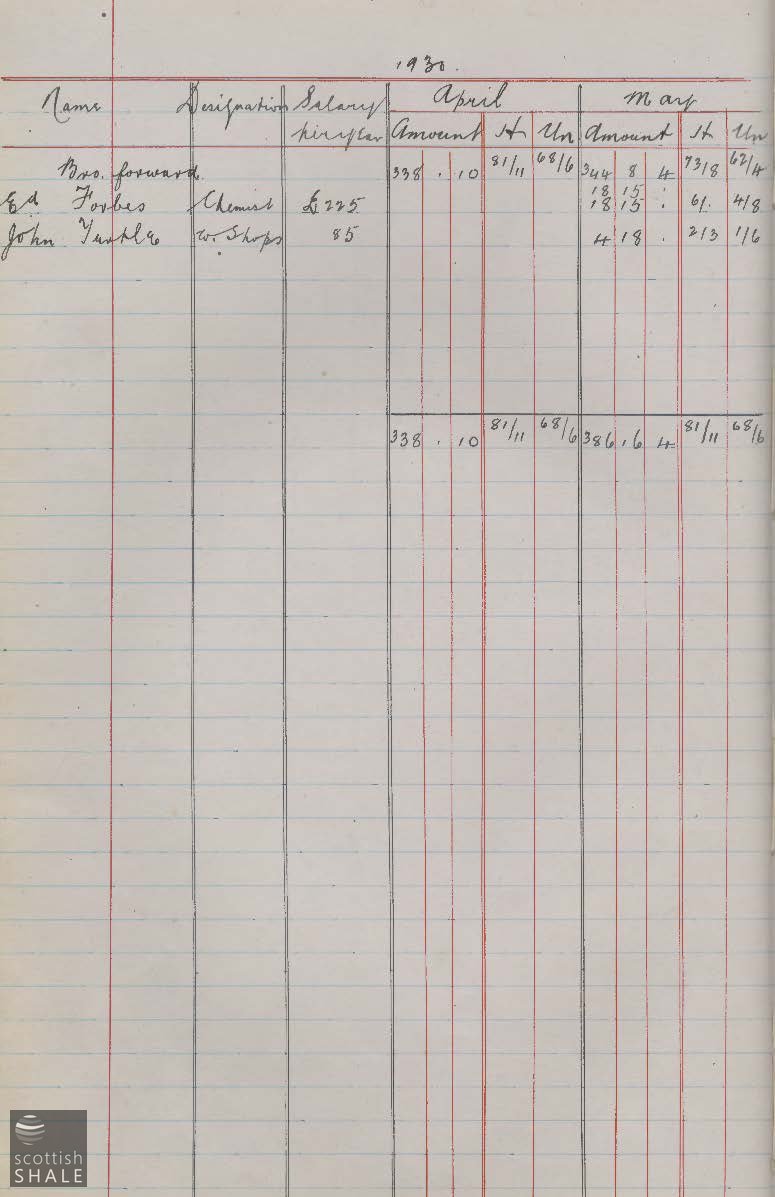 1930.
Name Designation Salary per year April May
Amount H Un Amount H Un
Bro. forward. 338 . 10 81/11 68/6 344 8 4 73/8 62/4
18 15 .
Ed Forbes Chemist £225 18 15 . 6/. 4/8
John Turtle W. Shops 85 4 18 . 2/3 1/6
338 . 10 81/11 68/6 386 16 4 81/11 68/6
scottish
SHALE